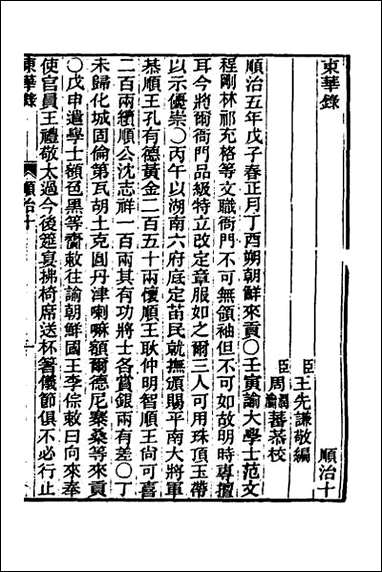 東華錄　順治十
臣王先謙敬編
臣周潤蕃蕃校
順治五年戊子春正月丁酉朔朝鮮來貢○壬寅諭大學士范文
程剛林祁充格等文職衙門不可無領袖但不可如故明時專擅
耳今將爾衙門品級特立改定章服如之爾三人可用珠頂玉帶
以示優崇○丙午以湖南六府底定苗民就撫頒賜平南大將軍
恭順王孔有德黃金二百五十兩懷順王耿仲明智順王尚可喜
二百兩續順公沈志祥一百兩其有功將士各賞銀兩有差○丁
未歸化城固倫第瓦胡土克圖丹津喇嘛額爾德尼寨桑等來貢
○戊申遣學士額色黑等齎敕往諭朝鮮國王李倧敕曰向來奉
使官員王禮敬太過今後筵宴拂椅席送杯箸儀節俱不必行止
東華錄　順治十　一